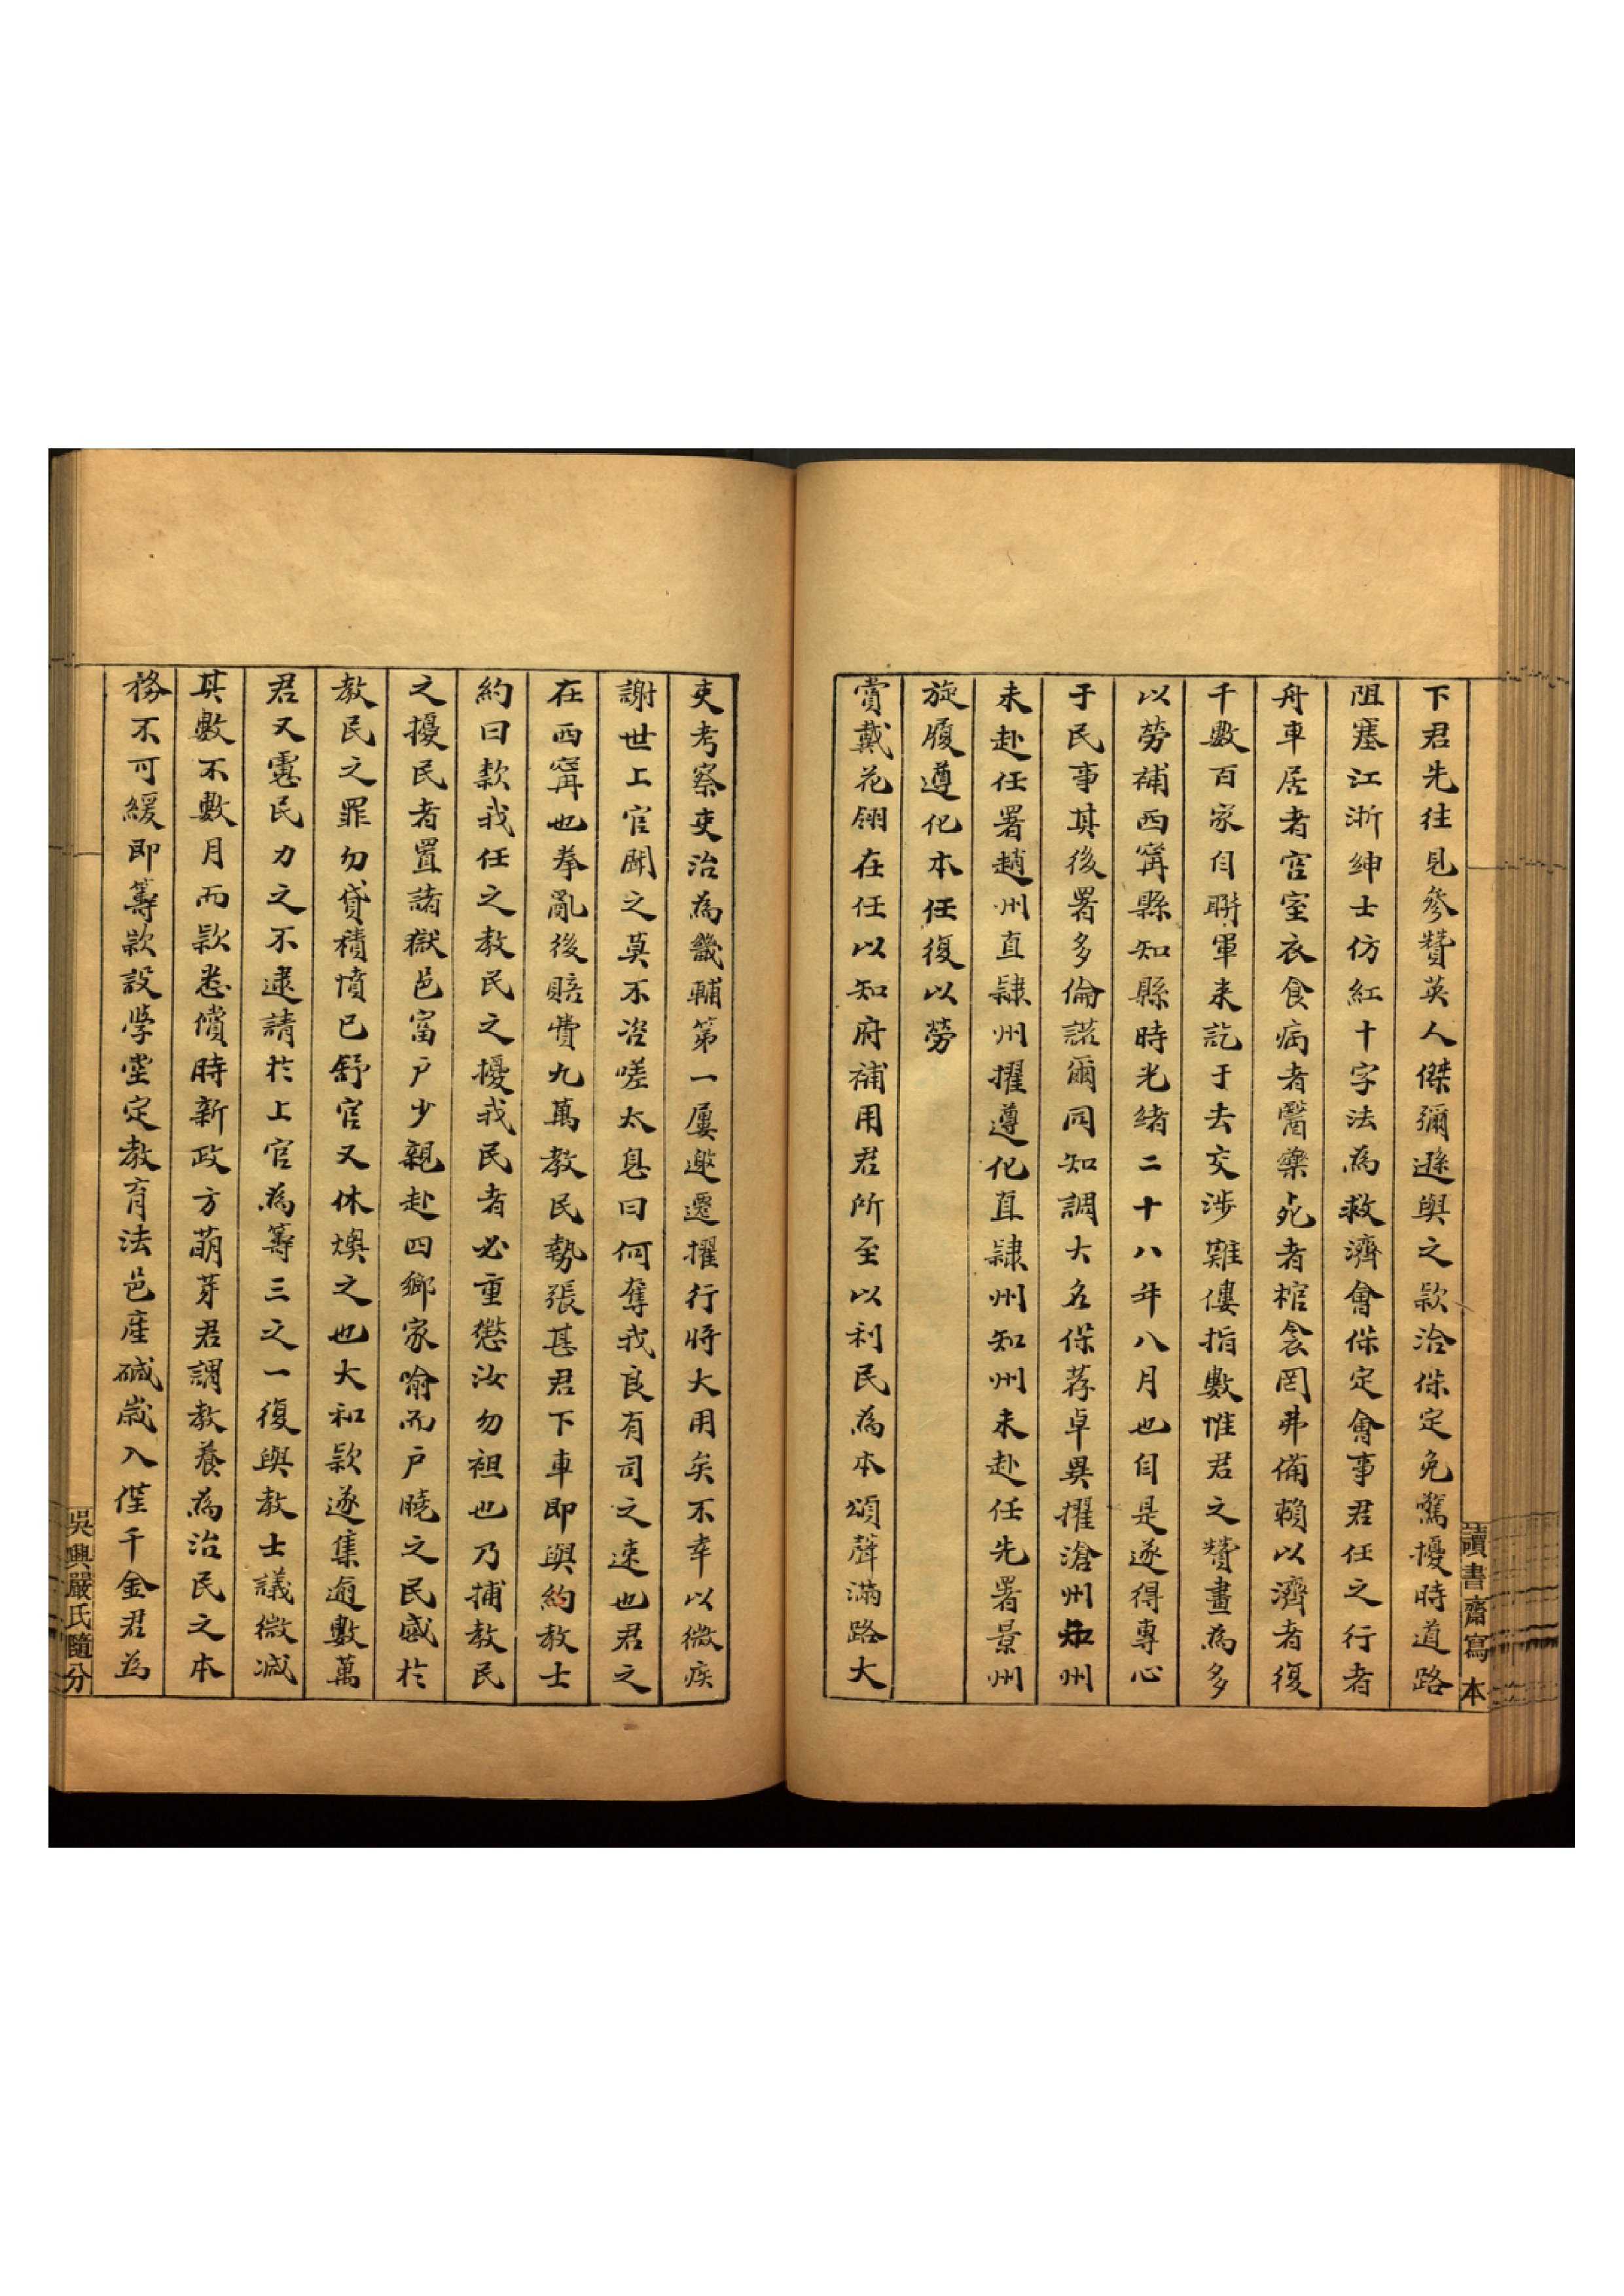 下君先往見參贊英人傑彌遜與之款洽保定免驚擾時道路
阻塞江浙紳士仿紅十字法為救濟會保定會事君任之行者
舟車居者宮室衣食病者醫藥死者棺衾罔弗備賴以濟者復
千數百家自聯軍来訖于去交涉難僂指數惟君之贊畫為多
以勞補西寗縣知縣時光緒二十八年八月也自是遂得專心
于民事其後署多倫諾爾同知調大名保荐卓異擢滄州知州
未赴任署趙州直隸州擢遵化直隸州知州未赴任先署景州
旋履遵化本任復以勞
賞戴花翎在任以知府補用君所至以利民為本頌聲滿路大
讀書齋寫本
吏考察吏治為畿輔第一屢邀遷擢行將大用矣不幸以微疾
謝世上官聞之莫不咨嗟太息曰何奪我良有司之速也君之
在西寗也拳亂後賠費九萬教民勢張甚君下車即與約教士
約曰款我任之教民之擾我民者必重懲汝勿袒也乃捕教民
之擾民者置諸獄邑富戶少親赴四鄉家喻而戶曉之民感於
教民之罪勿貸積憤已舒官又休燠之也大和款遂集逾數萬
君又慮民力之不逮請於上官為籌三之一復與教士議微減
其數不數月而款悉償時新政方萌芽君謂教養為治民之本
務不可緩即籌款設學堂定教育法邑產碱歲入僅千金君為
吳興嚴氏隨分